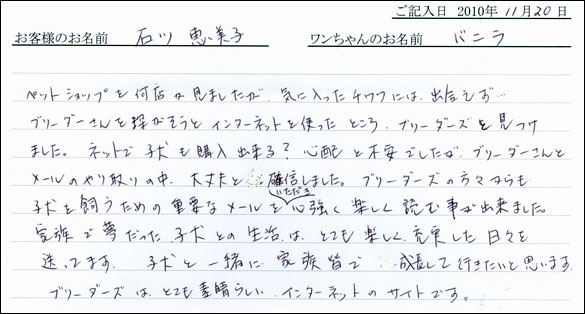 ご記入日 2010年 11月20日
お客様のお名前 石川 恵美子 ワンちゃんのお名前 バニラ
ペットショップを何店か見ましたが、気に入ったチワワには、出会えず…
ブリーダーさんを探がそうとインターネットを使ったところ、ブリーダーズを見つけ
ました。ネットで子犬も購入出来る? 心配と不安でしたが、ブリーダーさんと
メールのやり取りの中、大丈夫と確信しました。ブリーダーズの方々からも
いただき
子犬を飼うための重要なメールを心強く楽しく読む事が出来ました。
家族で夢だった子犬との生活は、とても楽しく充実した日々を
送ってます。子犬と一緒に家族皆で成長して行きたいと思います。
ブリーダーズは、とても素晴らしいインターネットのサイトです。